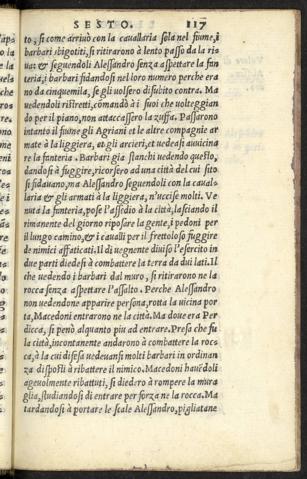 SESTO. 117
to, si come arriuò con la cauallaria sola nel fiume, i
barbari sbigotiti, si ritirarono à lento passo da la ri
ua: & seguendoli Alessandro senza aspettare la fan
teria, i barbari fidandosi nel loro numero perche era
no da cinquemila, se gli uolsero di subito contra. Ma
uedendoli ristretti, comãdò à i suoi che uolteggian
do per il piano, non attaccassero la zuffa. Passarono
intanto il fiume gli Agriani et le altre compagnie ar
mate à la liggiera, et gli arcieri, et uedeasi auuicina
re la fanteria. I Barbari gia stanchi uedendo questo,
dandosi à fuggire, ricorsero ad una città del cui sito
si fidauano, ma Alessandro seguendoli con la caual-
laria & gli armati à la liggiera, n'uccise molti. Ve
nuta la fanteria, pose l'assedio à la città, lasciando il
rimanente del giorno riposare la gente, i pedoni per
il lungo camino, & i caualli per il frettoloso fuggire
de nimici affaticati. Il di uegnente diuiso l'esercito in
due parti diedesi à combattere la terra da duo lati. Il
che uedendo i barbari dal muro, si ritirarono ne la
rocca senza aspettare l'assalto. Perche Alessandro
non uedendone apparire persona, rotta la uicina por
ta, Macedoni entrarono ne la città. Ma doue era Per
dicca, si penò alquanto piu ad entrare. Presa che fu
la città, incontanente andarono à combattere la rocc
ca, à la cui difesa uedeuansi molti barbari in ordinan
za disposti à ribattere il nimico. Macedoni hauẽdoli
ageuolmente ributtati, si diedero à rompere la mura
glia, studiandosi di entrare per forza ne la rocca. Ma
tardandosi à portare le scale Alessandro, pigliatane